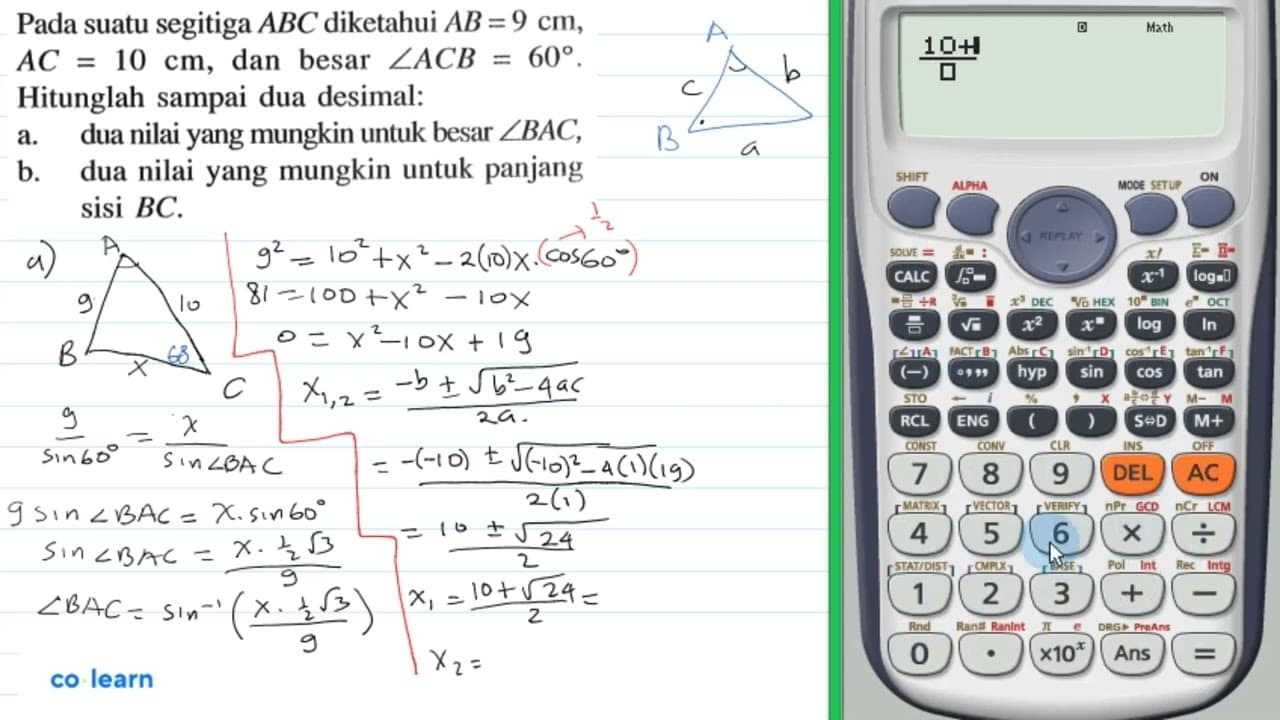 Pada suatu segitiga ABC diketahui AB = 9 cm,
AC = 10 cm, dan besar ∠ACB = 60°.
Hitunglah sampai dua desimal:
a. dua nilai yang mungkin untuk besar ∠BAC,
b. dua nilai yang mungkin untuk panjang
sisi BC.
A
b
c
B
a
a)
A
9
10
B
x
C
9/sin60° = x/sin∠BAC
9 sin∠BAC = x.sin60°
sin∠BAC = x.½√3/9
∠BAC = sin⁻¹(x.½√3/9)
→ ½
9² = 10² + x² - 2(10)x.(cos60°)
81 = 100 + x² - 10x
0 = x² - 10x + 19
x₁,₂ = -b ± √b²-4ac/2a.
= -(-10) ± √(-10)²-4(1)(19)/2(1)
= 10 ± √24/2
x₁ = 10+√24/2 =
x₂ =
co learn
D Math
10+
SHIFT ALPHA MODE SETUP ON
REPLAY
SOLVE = x!
CALC x⁻¹ log
³√ x³ DEC ˣ√ HEX 10ˣ BIN eˣ OCT
√ x² x log ln
∠ A FACT B Abs C sin⁻¹ D cos⁻¹ E tan⁻¹ F
(−) °,,, hyp sin cos tan
STO ← i % , X Y M− M
RCL ENG ( ) S⇔D M+
CONST CONV CLR INS OFF
7 8 9 DEL AC
MATRIX VECTOR VERIFY nPr GCD nCr LCM
4 5 6 × ÷
STAT/DIST CMPLX BASE Pol Int Rec Intg
1 2 3 + −
Rnd Ran# RanInt π e DRG▶ PreAns
0 . ×10ˣ Ans =